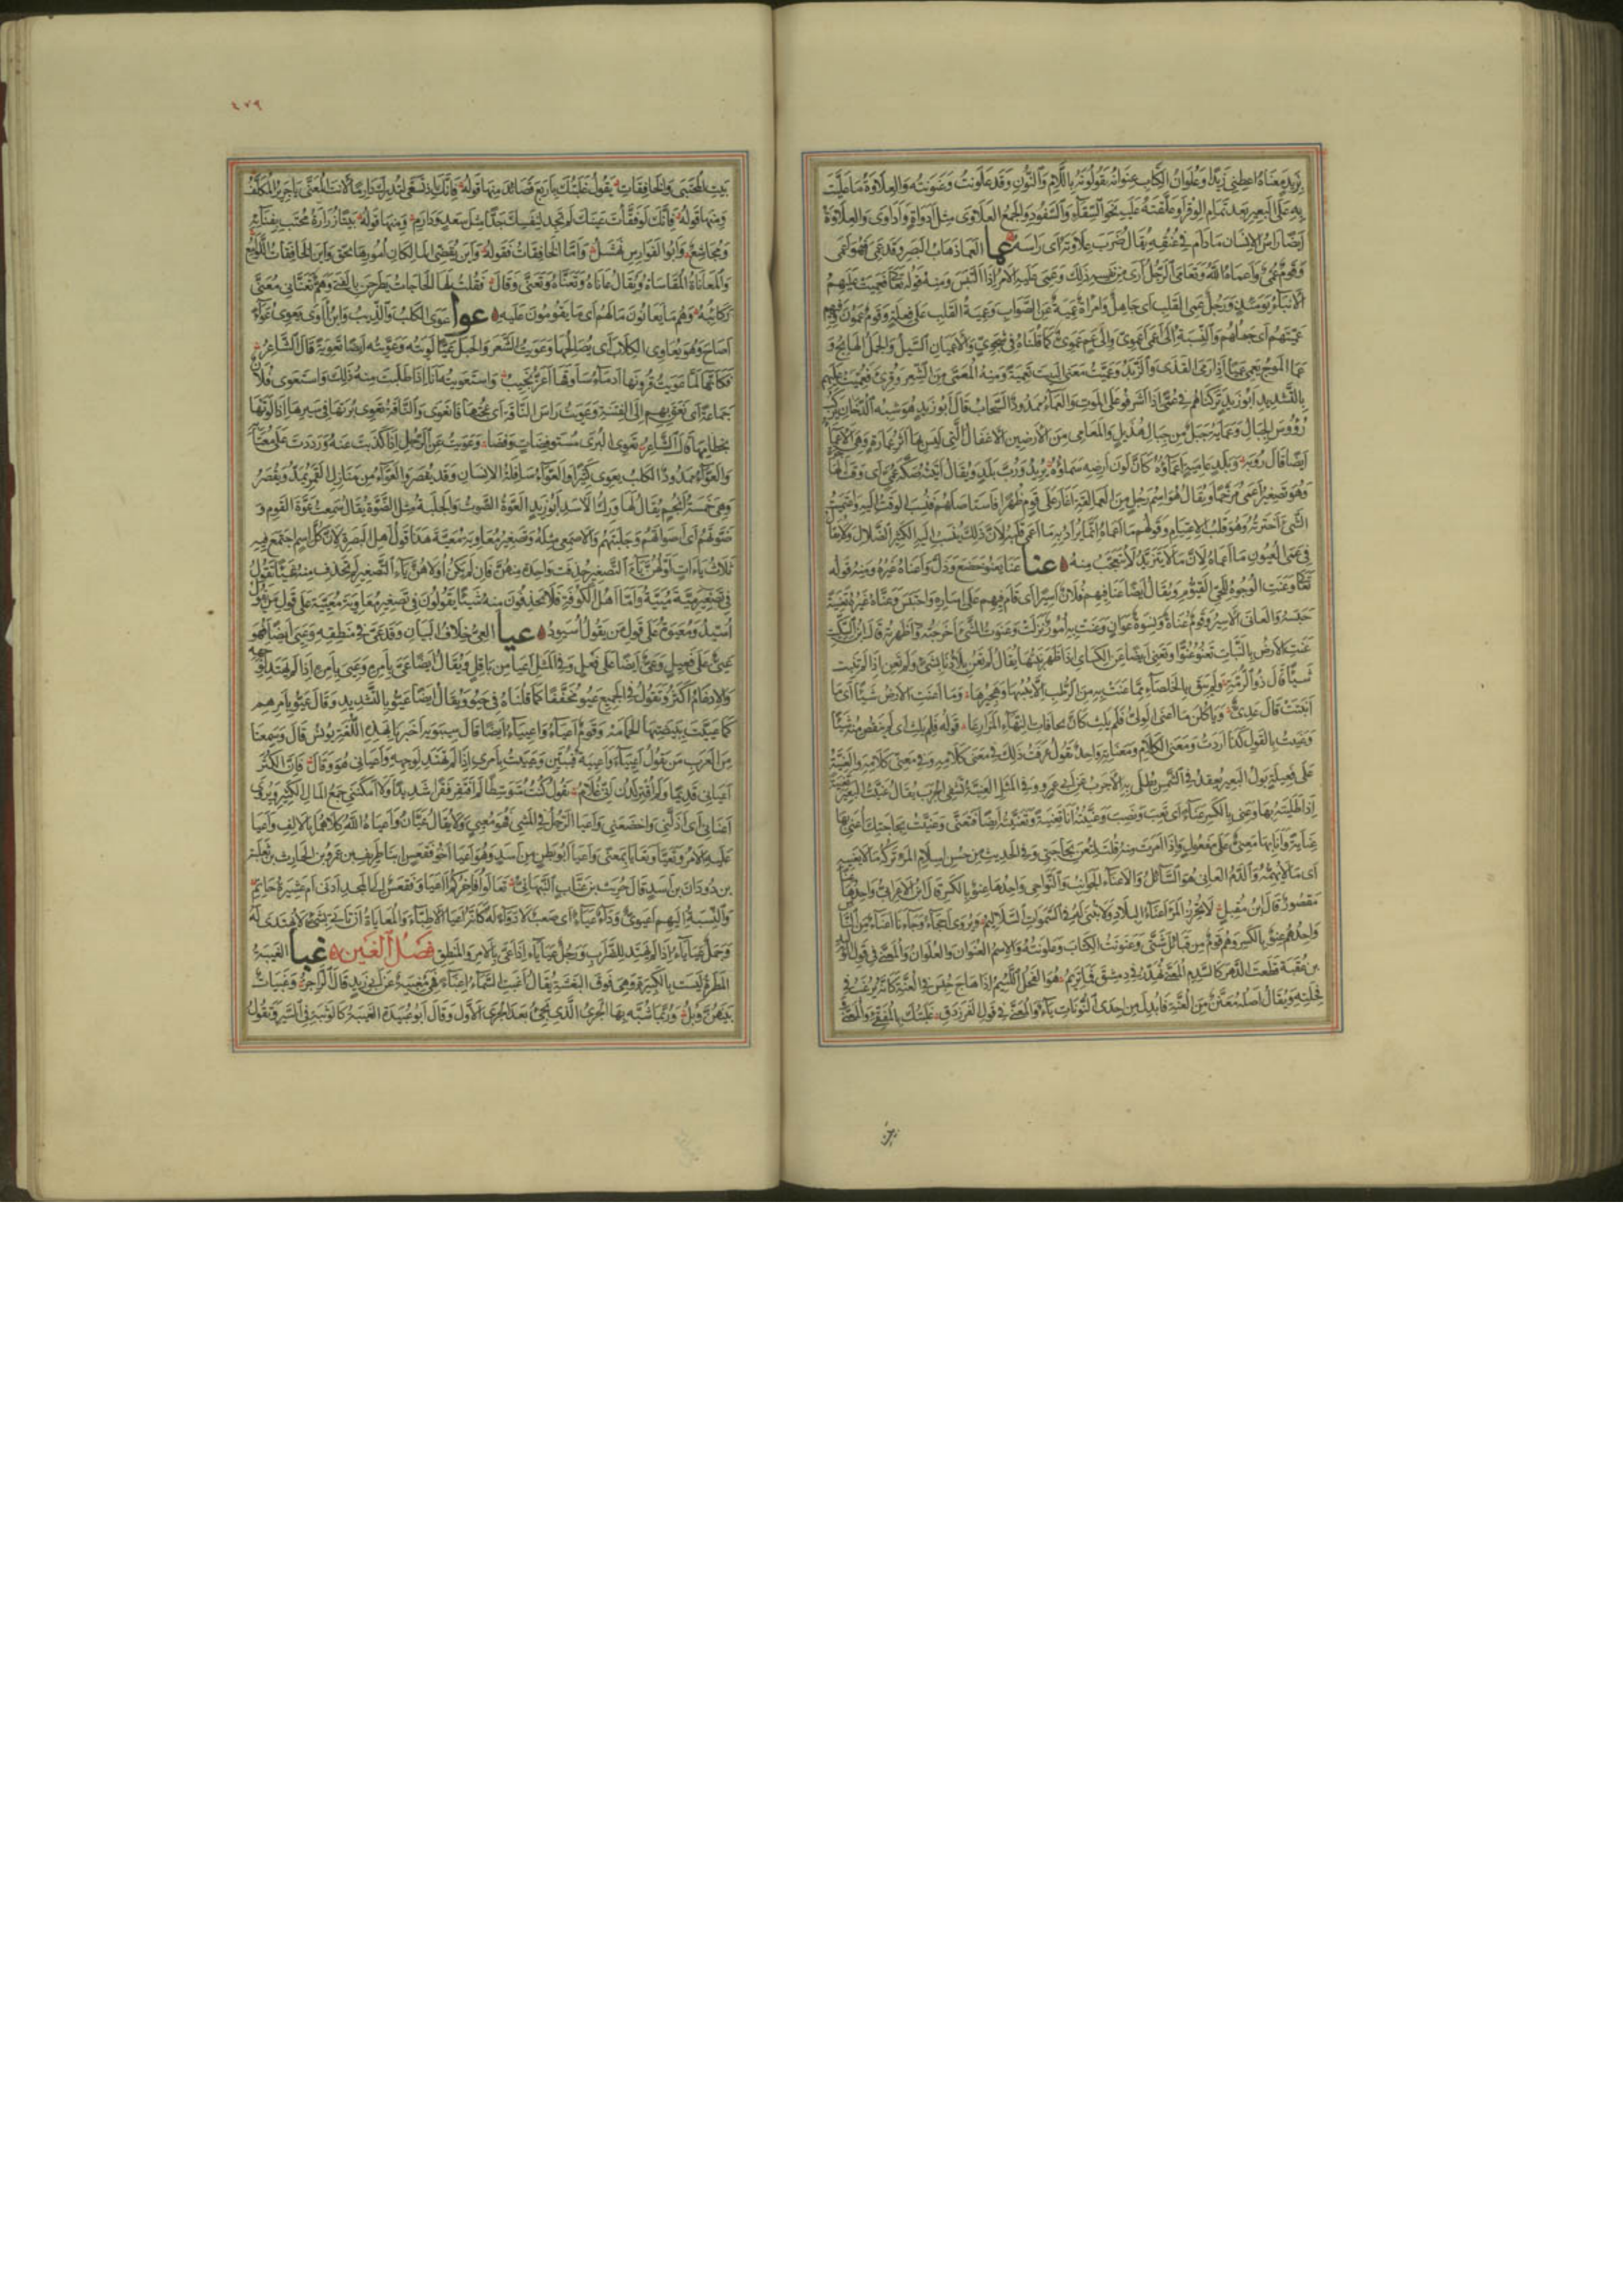 يزيد معناه اعطني زيدا وعلوان الكتاب عنوانه يقولونه باللام والنون وقد علونت وعنونته والعلاوة ما عليت
به على البعير بعد تمام الوقر او علقته عليه نحو السقاء والسفود والجمع العلاوى مثل اداوة واداوى والعلاوة
ايضا راس الانسان ما دام في عنقه يقال ضرب علاوته اى راسه عما العما ذهاب البصر وقد عمى فهو اعمى
وقوم عمى واعماه الله وتعامى الرجل ارى من نفسه ذلك وعمى عليه الامر اذا التبس ومنه قوله تعالى فعميت عليهم
الانباء يومئذ ورجل عمى القلب اى جاهل وامراة عمية عن الصواب وعمية القلب على فعلة وقوم عمون وفيهم
عميتهم اى جهلهم والنسبة الى اعمى اعموى والى عم عموى كما قلناه في شجوى والاعميان السيل والجمل الهايج و
عما الموج يعمى عميا اذا رمى القذى والزبد وعميت معنى البيت تعمية ومنه المعمى من الشعر وقرئ فعميت عليهم
بالتشديد ابو زيد تركناهم في عمى اذا اشرفوا على الموت والعماء ممدود السحاب قال ابو زيد هو شبه الدخان يركب
رؤوس الجبال وعماية جبل من جبال هذيل والمعامى من الارضين الاغفال التى ليس بها اثر عمارة وهى الاعماء
ايضا قال روبة وبلد عامية اعماؤه كان لون ارضه سماؤه يريد ورب بلد ويقال اتيته صكة عمى اى وقت الهاجرة
وهو تصغير اعمى مرخما ويقال هو اسم رجل من العمالقة اغار على قوم ظهرا فاستاصلهم فنسب الوقت اليه واعتميت
الشئ اخترته وهو قلب الاعتيام وقولهم ما اعماه انما يراد به ما اعمى قلبه لان ذلك ينسب اليه الكثير الضلال ولا يقال
في عمى العيون ما اعماه لان ما لا يتزيد لا يتعجب منه عنا عنا يعنو خضع وذل واعناه غيره ومنه قوله
تعالى وعنت الوجوه للحى القيوم ويقال ايضا عنا فيهم فلان اسيرا اى قام فيهم على اساره واحتبس وعناه غيره تعنية
حبسه والعانى الاسير وقوم عناة ونسوة عوان وعنت به امور نزلت وعنوت الشئ اخرجته واظهرته قال ابن السكيت
عنت الارض بالنبات تعنو عنوا وتعنى ايضا عن الكسائى اذا ظهر نبتها يقال لم تعن بلادنا بشئ ولم تعن اذا لم تنبت
شيئا قال ذو الرمة ولم يبق بالخلصاء مما عنت به من الرطب الا يبسها وهجيرها وما اعنت الارض شيئا اى ما
انبتت قال عدى ويأكلن ما اعنى الولى فلم يلت كان بحافات النهاء المزارعا قوله فلم يلت اى لم ينقص منه شيئا
وعنيت بالقول كذا اردت ومعنى الكلام ومعناته واحد تقول عرفت ذلك في معنى كلامه وفي معنى كلامه والعنية
على فعيلة بول البعير يعقد في الشمس يطلى به الاجرب عن ابى عمرو وفي المثل العنية تشفى الجرب يقال عنيت البعير تعنية
اذا طليته بها وعنى بالكسر عناء اى تعب ونصب وعنيته انا تعنية وتعنيته ايضا فتعنى وعنيت بحاجتك اعنى بها
عناية وانا بها معنى على مفعول واذا امرت منه قلت لتعن بحاجتى وفي الحديث من حسن اسلام المرء تركه ما لا يعنيه
اى ما لا يهمه والدم العانى هو السائل والاعناء الجوانب والنواحى واحدها عنو بالكسر قال ابن الاعرابى واحدها عنا
مقصور قال ابن مقبل لا تحرز المرء اعناء البلاد ولا تبنى له في السموات السلاليم ويروى احجاء وجاءنا اعناء من الناس
واحدهم عنو بالكسر وهم قوم من قبائل شتى وعنونت الكتاب وعلونته والاسم العنوان والعلوان والمعنى في قول الوليد
بن عقبة قطعت الدهر كالسدم المعنى تهدر في دمشق فما تريم هو الفحل اللئيم اذا هاج حبس في العنة كانه يرغب في
فحلته ويقال اصله معنن من العنة فابدلت من احدى النونات ياء والمعنى في قول الفرزدق غلبتك بالمفقئ والمعنى
بيت
٤٧٩
بيت المحتبى والخافقات يقول غلبتك باربع قصائد منها قوله فانك اذ تسعى لتدرك دارما لانت المعنى يا جرير المكلف
ومنها قوله فانك لو فقأت عينك لم تجد لنفسك جدا مثل سعد ودارم ومنها قوله بيتا زرارة محتب بفنائه
ومجاشع وابوا الفوارس نهشل واما الخافقات فقوله واين يقضى المالكان امورها بحق واين الخافقات اللوامع
والمعاناة المقاساة يقال عاناه وتعناه وتعنى وقال فقلت لها الحاجات يطرحن بالفتى وهم تعنانى معنى
ركائبه وهم ما يعانون مالهم اى ما يقومون عليه عوا عوى الكلب والذئب وابن اوى يعوى عواء
اصاح وهو يعاوى الكلاب اى يصايحها وعويت الشعر والحبل عيا لويته وعويته ايضا تعوية قال الشاعر
فكانها لما عويت قرونها ادماء ساوقها اغر نجيب واستعويته انا اذا طلبت منه ذلك واستعوى فلان
جماعة اى نعق بهم الى الفتنة وعويت راس الناقة اى عجتها فانعوى والناقة تعوى برتها في سيرها اذا لوتها
بخطامها قال الشاعر تعوى البرى مستوفضات وفضا وعويت عن الرجل اذا كذبت عنه ورددت على مغتابه
والعواء ممدودا الكلب يعوى كثيرا والعواء سافلة الانسان وقد يقصر والعواء من منازل القمر يمد ويقصر
وهى خمسة انجم يقال لها ورك الاسد ابو زيد العوة الصوت والجلبة مثل الضوة يقال سمعت عوة القوم و
ضوتهم اى اصواتهم وجلبتهم والاصمعى مثله وتصغير معاوية معية هذا قول اهل البصرة لان كل اسم اجتمع فيه
ثلاث ياءات اولهن ياء التصغير حذفت واحدة منهن فان لم يكن اولاهن ياء التصغير لم تحذف منه شيئا تقول
في تصغير مية مييية واما اهل الكوفة فلا يحذفون منه شيئا يقولون في تصغير معاوية معيية على قول من يقول
اسيد ومعيوة على قول من يقول اسيود عيا العى خلاف البيان وقد عى في منطقه وعيى ايضا فهو
عيى على فعيل وعى ايضا على فعل وفي المثل اعيا من باقل ويقال ايضا عى بامره وعيى بامره اذا لم يهتد لوجهه
والادغام اكثر وتقول في الجميع عيوا مخففا كما قلناه في حيوا ويقال ايضا عيوا بالتشديد وقال عيوا بامرهم
كما عيت ببيضتها الحمامة وقوم اعياء واعيياء ايضا قال سيبويه اخبرنا بهذه اللغة يونس قال وسمعنا
من العرب من يقول اعيياء واعيية فيبين وعييت بامرى اذا لم تهتد لوجهه واعيانى هو وقال فان الكثر
اعيانى قديما ولم اقتر لدن انى غلام يقول كنت متوسطا لم افتقر فقرا شديدا ولا امكننى جمع المال الكثير ويروى
اعنانى اى اذلنى واخضعنى واعيا الرجل في المشى فهو معيى ولا يقال عيان واعياه الله كلاهما بالالف واعيا
عليه الامر وتعيا وتعايا بمعنى واعيا ابو بطن من اسد وهو اعيا اخو فقعس ابنا طريف بن عمرو بن الحارث بن ثعلبة
بن دودان بن اسد قال حريث بن عتاب النبهانى تعالوا افاخركم اأعيا وفقعس الى المجد ادنى ام عشيرة حاتم
والنسبة اليهم اعيوى وداء عياء اى صعب لا دواء له كانه اعيا الاطباء والمعاياة ان تاتى بشئ لا يهتدى له
وجمل عياياء اذا لم يهتد للضراب ورجل عياياء اذا عى بالامر والمنطق فصل الغين غبا الغبية
المطرة ليست بالكثيرة وهى فوق البغشة يقال اغبت السماء اغباء فهى مغبية عن ابى زيد قال الراجز وغبيات
بينهن وبل وربما شبه بها الجرى الذى يجئ بعد الجرى الاول وقال ابو عبيدة الغبية كالوثبة في السير وتقول